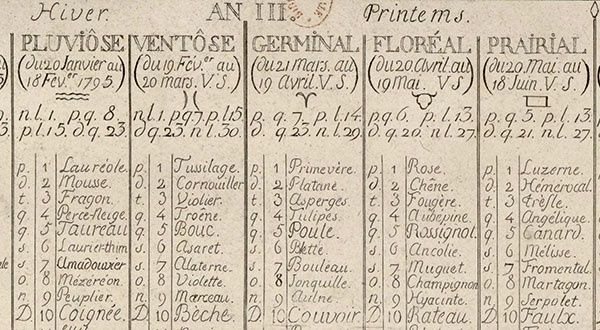 Hiver.
AN III
Printems.
PLUVIÔSE
(du 20 Janvier au
18 Fév.er 1795.)
n.l.1. p.q.8.
p.l.15. d.q.23.
p. 1 Lauréole.
d. 2 Mousse.
t. 3 Fragon.
q. 4 Perce-Neige.
q. 5 Taureau
s. 6 Laurierthim
s. 7 Amadouvier
o. 8 Mézéréon.
n. 9 Peuplier.
D. 10 Coignée.
VENTÔSE
(du 19 Fév.er au
20 mars. V.S.)
n.l.1. p.q.7. p.l.15.
d.q.23. n.l.30.
p. 1 Tussilage.
d. 2 Cornouiller
t. 3 Violier.
q. 4 Troëne.
q. 5 Bouc.
s. 6 Asaret.
s. 7 Alaterne.
o. 8 Violette.
n. 9 Marceau.
D. 10 Bêche.
GERMINAL
(du 21 mars. au
19 Avril. V.S.)
p.q.7. p.l.14.
d.q.23. n.l.29.
p. 1 Primevère.
d. 2 Platane.
t. 3 Asperges
q. 4 Tulipes.
q. 5 Poule.
s. 6 Bette.
s. 7 Bouleau.
o. 8 Jonquille.
n. 9 Aulne.
D. 10 Couvoir
FLORÉAL
(du 20 Avril. au
19 Mai. V.S)
p.q.6. p.l.13.
d.q.20. n.l.27.
p. 1 Rose.
d. 2 Chêne.
t. 3 Fougère.
q. 4 Aubépine.
q. 5 Rossignol.
s. 6 Ancolie.
s. 7 Muguet.
o. 8 Champignon
n. 9 Hyacinte.
D. 10 Rateau.
PRAIRIAL
(du 20. Mai. au
18 Juin. V.S.)
p.q.5. p.l.13.
d.q.21. n.l.27.
p. 1 Luzerne.
d. 2 Hémérocal.
t. 3 Trèfle.
q. 4 Angélique.
q. 5 Canard.
s. 6 Mélisse.
s. 7 Fromental.
o. 8 Martagon.
n. 9 Serpolet.
D. 10 Faulx.